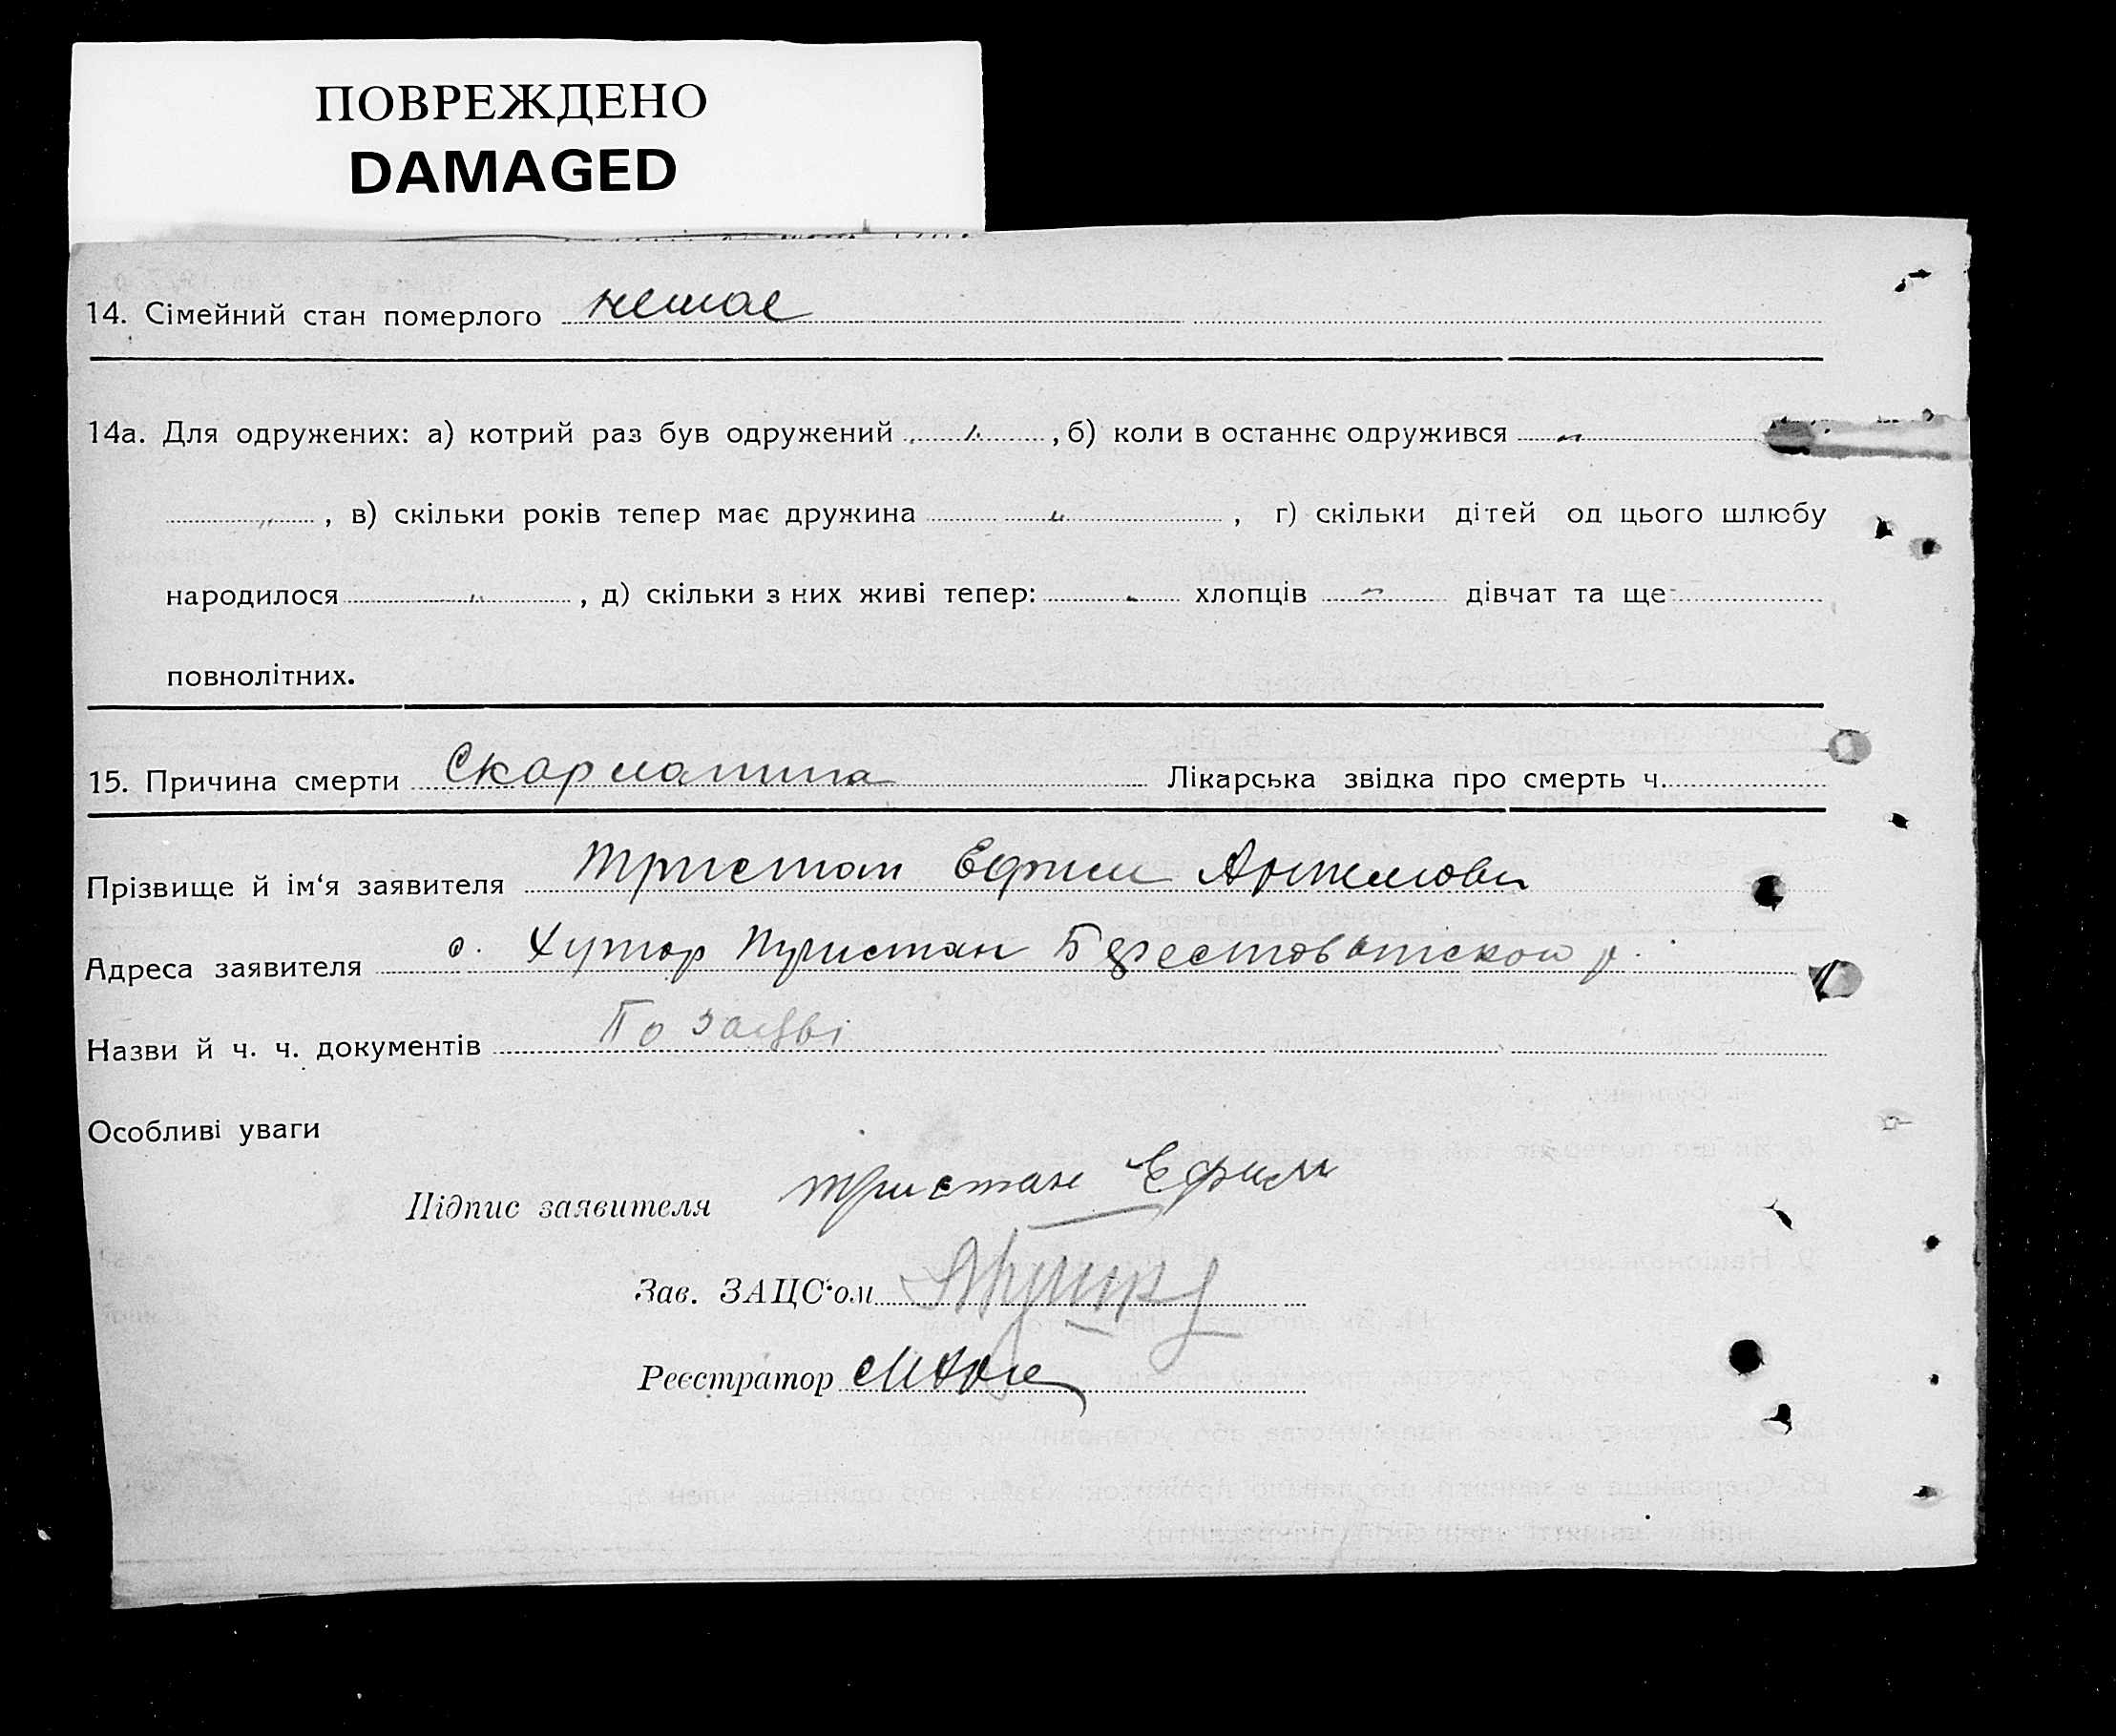 ПОВРЕЖДЕНО
DAMAGED
14. Сімейний стан померлого немає
14а. Для одружених: а) котрий раз був одружений „ , б) коли в останнє одружився „
„ , в) скільки років тепер має дружина „ , г) скільки дітей од цього шлюбу
народилося „ , д) скільки з них живі тепер: „ хлопців „ дівчат та ще
повнолітних.
15. Причина смерти Скарлатина Лікарська звідка про смерть ч.
Прізвище й ім'я заявителя Тристан Ефим
Адреса заявителя Хутор Тристан
Назви й ч. ч. документів По заяві
Особливі уваги
Підпис заявителя Тристан Ефим
Зав. ЗАЦС'ом
Реєстратор